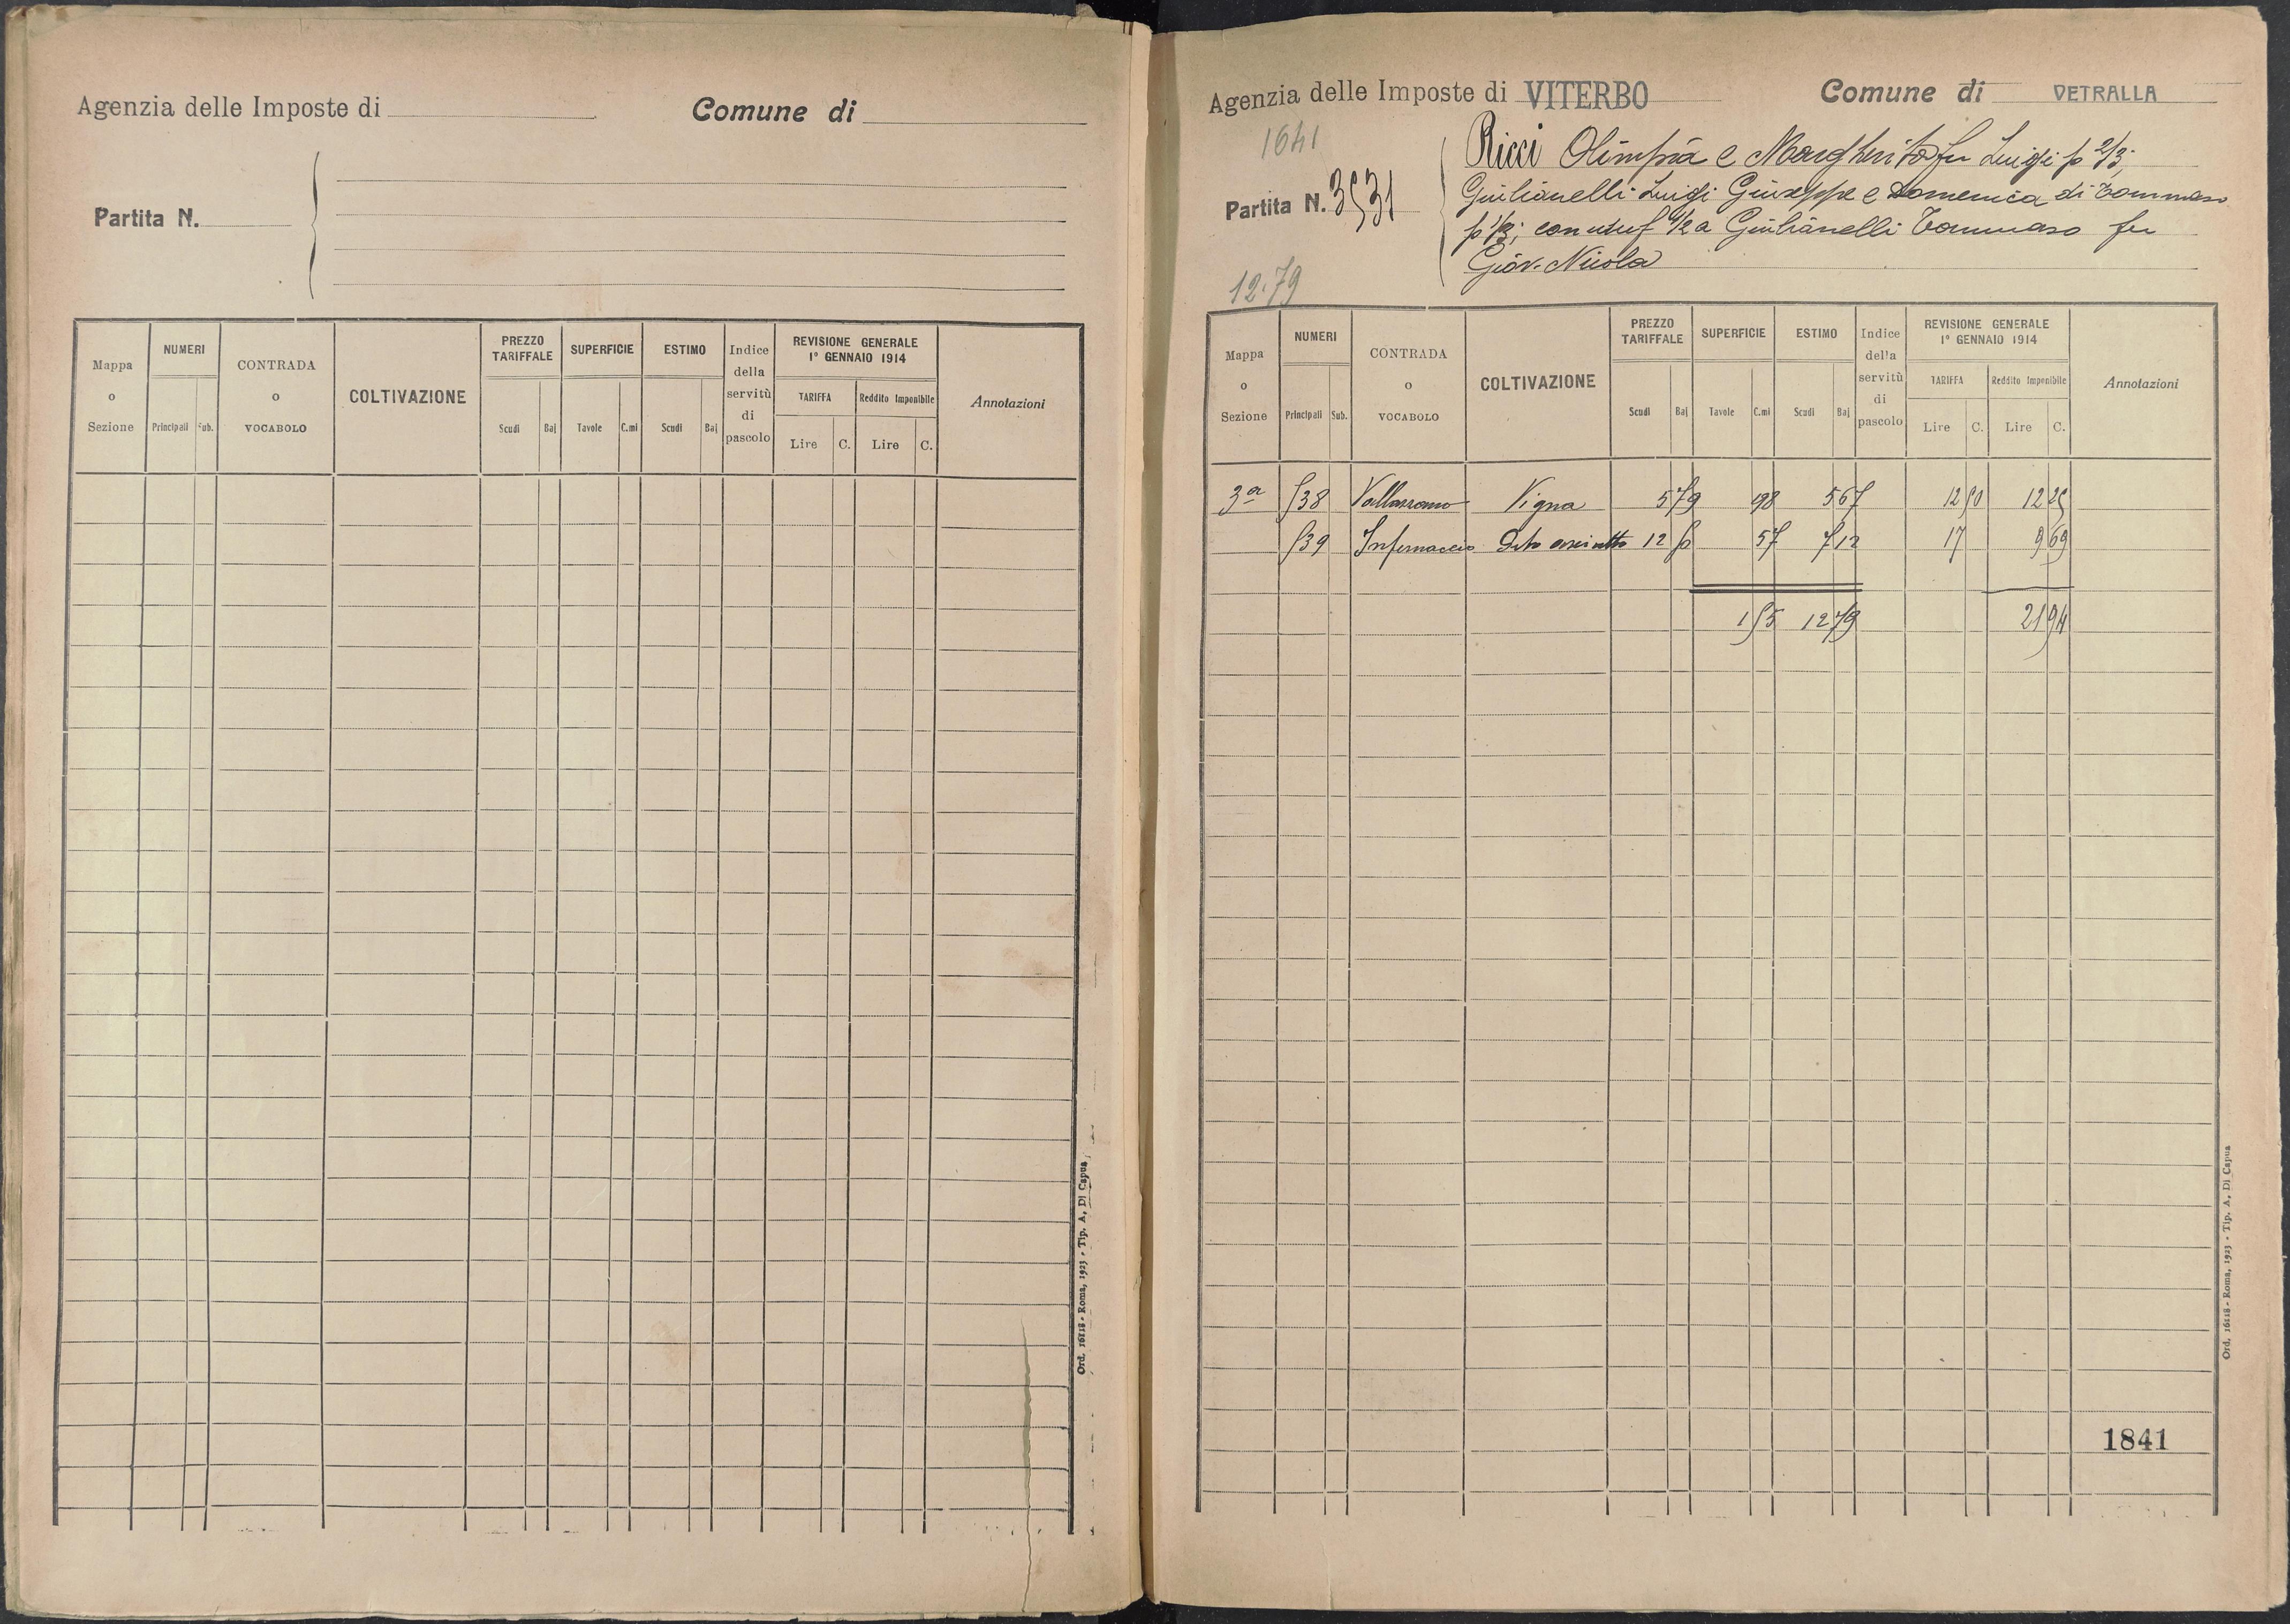 Agenzia delle Imposte di
Comune di
Partita N.
Mappa o Sezione
NUMERI
Principali
Sub.
CONTRADA o VOCABOLO
COLTIVAZIONE
PREZZO TARIFFALE
Scudi
Baj
SUPERFICIE
Tavole
C.mi
ESTIMO
Scudi
Baj
Indice della servitù di pascolo
REVISIONE GENERALE
1° GENNAIO 1914
TARIFFA
Lire
C.
Reddito Imponibile
Lire
C.
Annotazioni
Ord. 16118 - Roma, 1923 - Tip. A. Di Capua
Agenzia delle Imposte di VITERBO
Comune di VETRALLA
1641
Partita N. 3531
Ricci Olimpia e Margherita fu Luigi p 2/3;
Giulianelli Luigi Giuseppe e Domenica di Tommaso
p 1/3; con usuf 1/2 a Giulianelli Tommaso fu
Giov. Nicola
12.79
Mappa o Sezione
NUMERI
Principali
Sub.
CONTRADA o VOCABOLO
COLTIVAZIONE
PREZZO TARIFFALE
Scudi
Baj
SUPERFICIE
Tavole
C.mi
ESTIMO
Scudi
Baj
Indice della servitù di pascolo
REVISIONE GENERALE
1° GENNAIO 1914
TARIFFA
Lire
C.
Reddito Imponibile
Lire
C.
Annotazioni
3a 538 Vigna 5 79 98 5 67 12 50 12 25
539 Infernaccio 12 57 7 12 17 9 69
1 55 12 79 21 94
1841
Ord. 16118 - Roma, 1923 - Tip. A. Di Capua